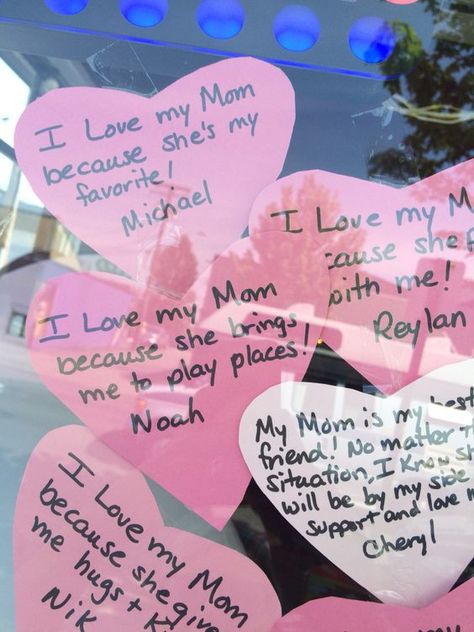 I Love my Mom
because she's my
favorite!
Michael
I Love my
with me!
Reylan
I Love my Mom
because she brings
me to play places!
Noah
My Mom is my best
friend! No matter
situation, I know
will be by my side
support and love
Cheryl
I Love my Mom
because she
me hugs +